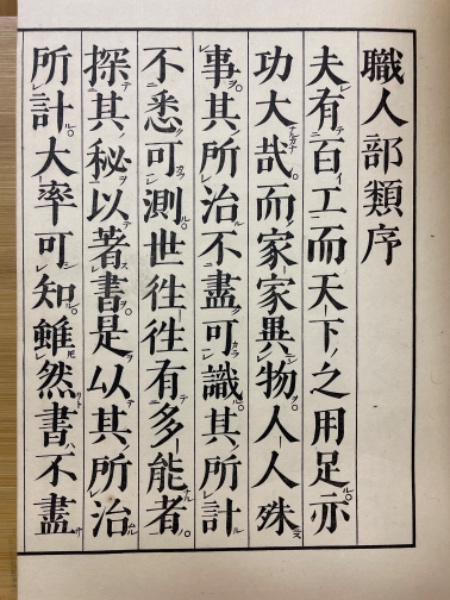 職人部類序
夫有百工而天下之用足亦
功大哉而家家異物人人殊
事其所治不盡可識其所計
不悉可測世徃徃有多能者
探其秘以著書是以其所治
所計大率可知雖然書不盡